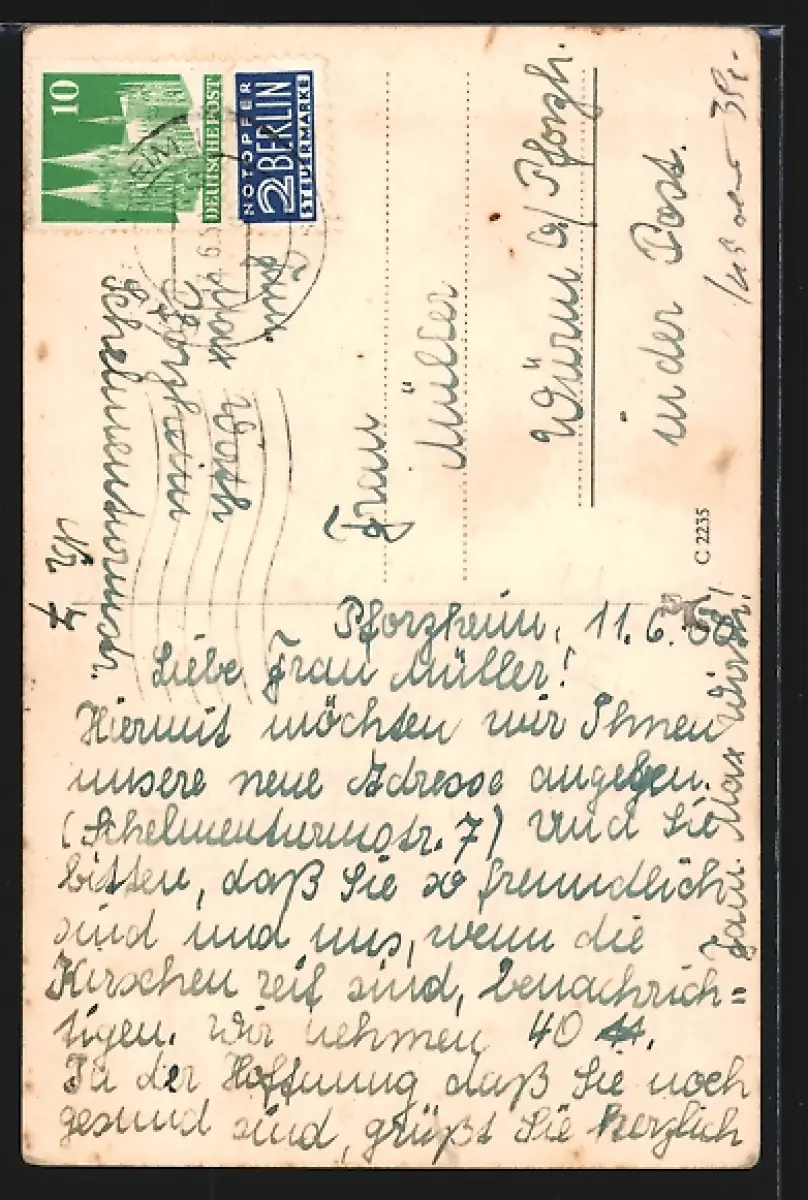 10
DEUTSCHE POST
NOTOPFER
2 BERLIN
STEUERMARKE
EIM
Fam.
Max Wirth
Pforzheim
Schelmenturmstr.
Nr. 7
Frau
Müller
Würm b/ Pforzh.
in der Post.
C 2235
Pforzheim, 11. 6. 50!
Liebe Frau Müller!
Hiermit möchten wir Ihnen
unsere neue Adresse angeben.
(Schelmenturmstr. 7) und Sie
bitten, daß Sie so freundlich
sind und uns, wenn die
Kirschen reif sind, benachrich=
tigen. Wir nehmen 40 ℔.
In der Hoffnung daß Sie noch
gesund sind, grüßt Sie herzlich
Fam. Max Wirth!